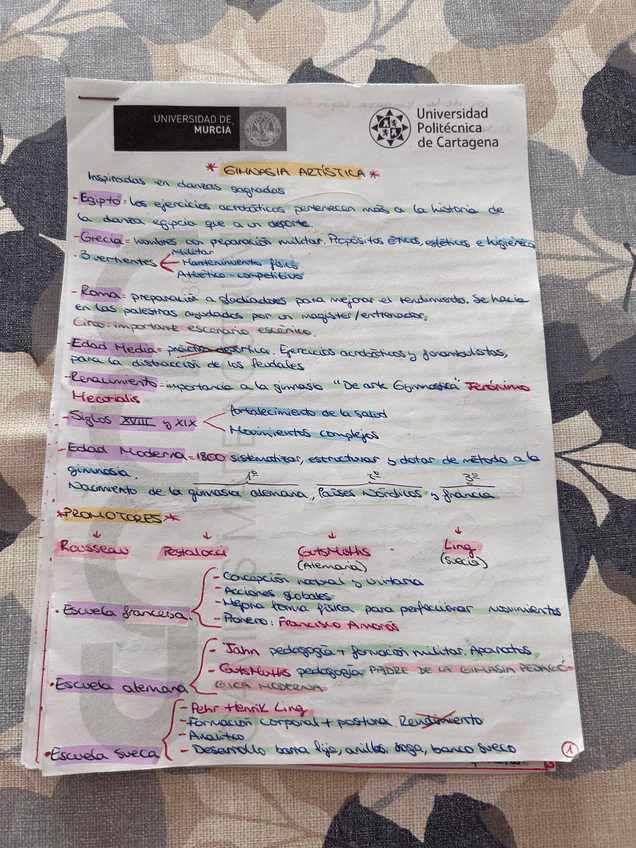 UNIVERSIDAD DE
MURCIA
Universidad
Politécnica
de Cartagena
* GIMNASIA ARTÍSTICA *
Inspiradas en danzas sagradas
- Egipto: los ejercicios acrobáticos pertenecen más a la historia de
la danza egipcia que a un deporte.
- Grecia = hombres con preparación militar. Propósitos éticos, estéticos e higiénico
· 3 vertientes
Militar
Mantenimiento físico
Atlético-competitivo
- Roma = preparación a gladiadores para mejorar el rendimiento. Se hacía
en las palestras ayudados por un magister/entrenador.
Circo: importante escenario escénico.
- Edad Media = práctica deportiva. Ejercicios acrobáticos y funambalistas,
para la distracción de los feudales
- Renacimiento = importancia a la gimnasia "De arte Gymnastica" Jerónimo
Mecurialis
- Siglos XVIII y XIX
Fortalecimiento de la salud
Movimientos complejos
- Edad Moderna = 1800 sistematizar, estructurar y dotar de método a la
gimnasia.
1º 2º 3º
Nacimiento de la gimnasia alemana, Países Nórdicos y francia
*PROMOTORES*
Rousseau Pestalocci GutsMuths Ling
(Alemania) (Suecia)
· Escuela francesa
- Concepción natural y unitaria
- Acciones globales
- Mejora forma física para perfeccionar movimientos
- Pionero: Francisco Amorós
· Escuela alemana
- Jahn pedagogía + formación militar. Aparatos
- GutsMuths pedagogía PADRE DE LA GIMASIA PEDAGÓ
GICA MODERNA
· Escuela Sueca
- Pehr Henrik Ling
- Formación corporal + postura Rendimiento
- Analítico
- Desarrollo barra fija, anillas, soga, banco sueco
1